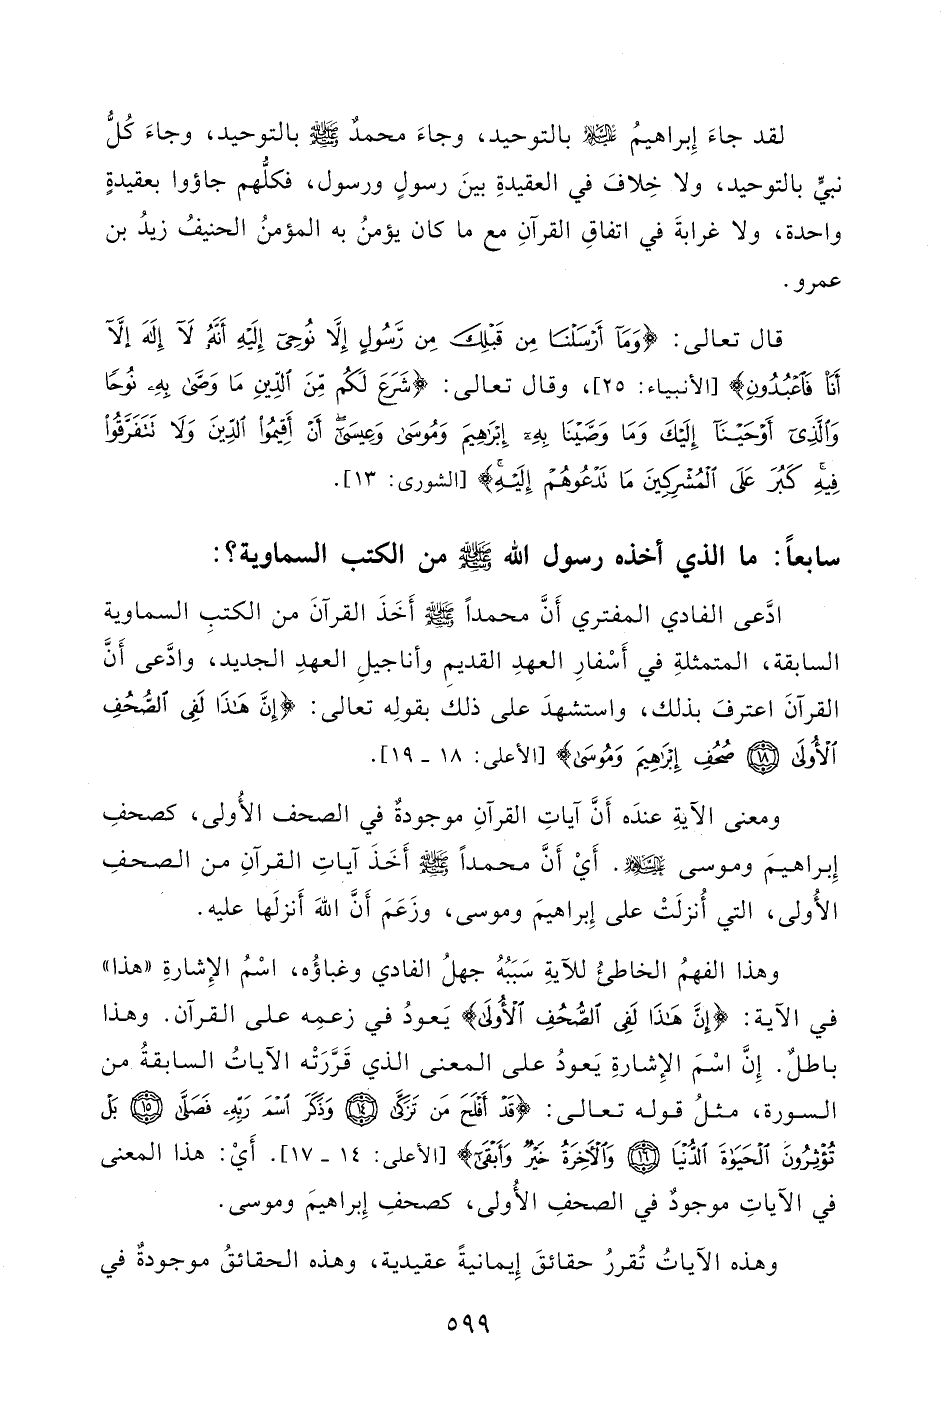 لقد جاءَ إبراهيمُ عليه السلام بالتوحيد، وجاءَ محمدٌ ﷺ بالتوحيد، وجاءَ كُلُّ
نبيٍّ بالتوحيد، ولا خِلافَ في العقيدةِ بينَ رسولٍ ورسول، فكلُّهم جاؤوا بعقيدةٍ
واحدة، ولا غرابةَ في اتفاقِ القرآنِ مع ما كان يؤمنُ به المؤمنُ الحنيفُ زيدُ بن
عمرو.
قال تعالى: ﴿وَمَآ أَرْسَلْنَا مِن قَبْلِكَ مِن رَّسُولٍ إِلَّا نُوحِىٓ إِلَيْهِ أَنَّهُۥ لَآ إِلَٰهَ إِلَّآ
أَنَا۠ فَٱعْبُدُونِ﴾ [الأنبياء: ٢٥]، وقال تعالى: ﴿شَرَعَ لَكُم مِّنَ ٱلدِّينِ مَا وَصَّىٰ بِهِۦ نُوحًا
وَٱلَّذِىٓ أَوْحَيْنَآ إِلَيْكَ وَمَا وَصَّيْنَا بِهِۦٓ إِبْرَٰهِيمَ وَمُوسَىٰ وَعِيسَىٰٓ ۖ أَنْ أَقِيمُوا۟ ٱلدِّينَ وَلَا تَتَفَرَّقُوا۟
فِيهِ ۚ كَبُرَ عَلَى ٱلْمُشْرِكِينَ مَا تَدْعُوهُمْ إِلَيْهِ ۚ﴾ [الشورى: ١٣].
سابعاً: ما الذي أخذه رسول الله ﷺ من الكتب السماوية؟:
ادَّعى الفادي المفتري أَنَّ محمداً ﷺ أَخَذَ القرآنَ من الكتبِ السماوية
السابقة، المتمثلةِ في أَسْفارِ العهدِ القديمِ وأناجيلِ العهدِ الجديد، وادَّعى أَنَّ
القرآنَ اعترفَ بذلك، واستشهدَ على ذلك بقولِه تعالى: ﴿إِنَّ هَٰذَا لَفِى ٱلصُّحُفِ
ٱلْأُولَىٰ ۝١٨ صُحُفِ إِبْرَٰهِيمَ وَمُوسَىٰ﴾ [الأعلى: ١٨ ـ ١٩].
ومعنى الآيةِ عندَه أَنَّ آياتِ القرآنِ موجودةٌ في الصحف الأُولى، كصحفِ
إبراهيمَ وموسى عليهما السلام. أَيْ أَنَّ محمداً ﷺ أَخَذَ آياتِ القرآنِ من الصحفِ
الأُولى، التي أُنزلَتْ على إبراهيمَ وموسى، وزَعَمَ أَنَّ اللهَ أنزلَها عليه.
وهذا الفهمُ الخاطئُ للآيةِ سَبَبُهُ جهلُ الفادي وغباؤُه، اسْمُ الإشارةِ «هذا»
في الآية: ﴿إِنَّ هَٰذَا لَفِى ٱلصُّحُفِ ٱلْأُولَىٰ﴾ يَعودُ في زعمِه على القرآن. وهذا
باطلٌ. إنَّ اسْمَ الإشارةِ يَعودُ على المعنى الذي قَرَّرَتْه الآياتُ السابقةُ من
السورة، مثلُ قوله تعالى: ﴿قَدْ أَفْلَحَ مَن تَزَكَّىٰ ۝١٤ وَذَكَرَ ٱسْمَ رَبِّهِۦ فَصَلَّىٰ ۝١٥ بَلْ
تُؤْثِرُونَ ٱلْحَيَوٰةَ ٱلدُّنْيَا ۝١٦ وَٱلْءَاخِرَةُ خَيْرٌ وَأَبْقَىٰٓ﴾ [الأعلى: ١٤ ـ ١٧]. أَيْ: هذا المعنى
في الآياتِ موجودٌ في الصحفِ الأُولى، كصحفِ إبراهيمَ وموسى.
وهذه الآياتُ تُقررُ حقائقَ إيمانيةً عقيدية، وهذه الحقائقُ موجودةٌ في
٥٩٩